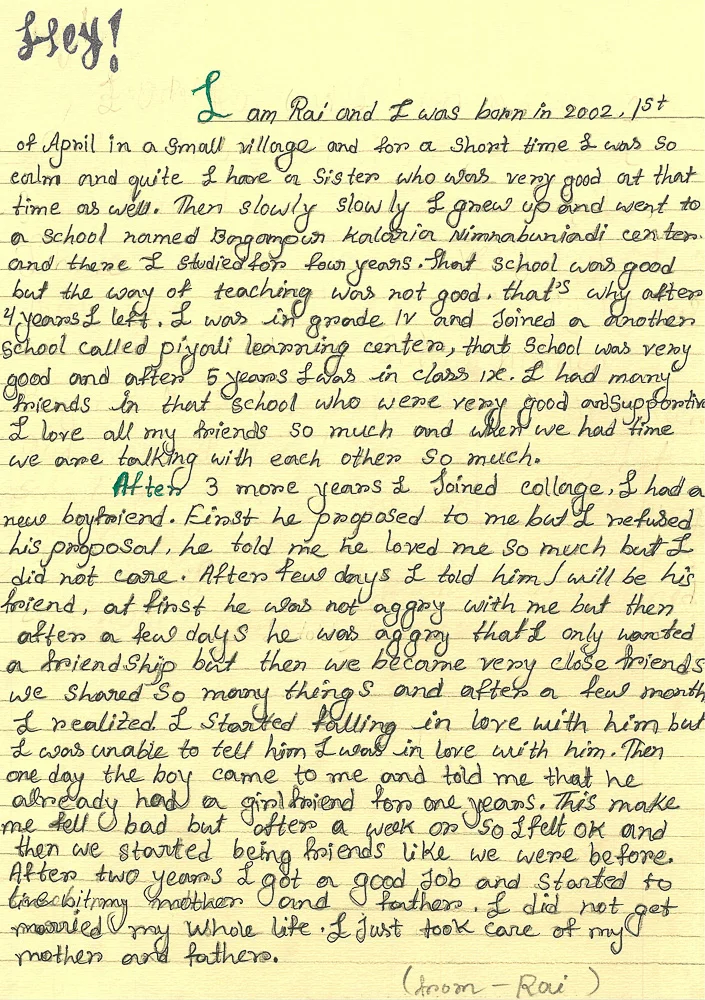 Hey!
I am Rai and I was born in 2002, 1st
of April in a small village and for a short time I was so
calm and quite I have a sister who was very good at that
time as well. Then slowly slowly I grew up and went to
a school named Bagampur Kalaria Nimnabuniadi center.
and there I studied for four years. That school was good
but the way of teaching was not good. that's why after
4 years I left. I was in grade IV and Joined a another
school called piyali learning center, that school was very
good and after 5 years I was in class ix. I had many
friends in that school who were very good and Supportive
I love all my friends so much and when we had time
we are talking with each other so much.
After 3 more years I Joined collage, I had a
new boyfriend. First he proposed to me but I refused
his proposal, he told me he loved me so much but I
did not care. After few days I told him I will be his
friend, at first he was not aggry with me but then
after a few days he was aggry that I only wanted
a friendship but then we became very close friends
we shared so many things and after a few month
I realized I started falling in love with him but
I was unable to tell him I was in love with him. Then
one day the boy came to me and told me that he
already had a girlfriend for one years. This make
me fell bad but after a week or so I felt ok and
then we started being friends like we were before.
After two years I got a good Job and started to
my mother and father. I did not get
married my whole life. I Just took care of my
mother and father.
(from - Rai)